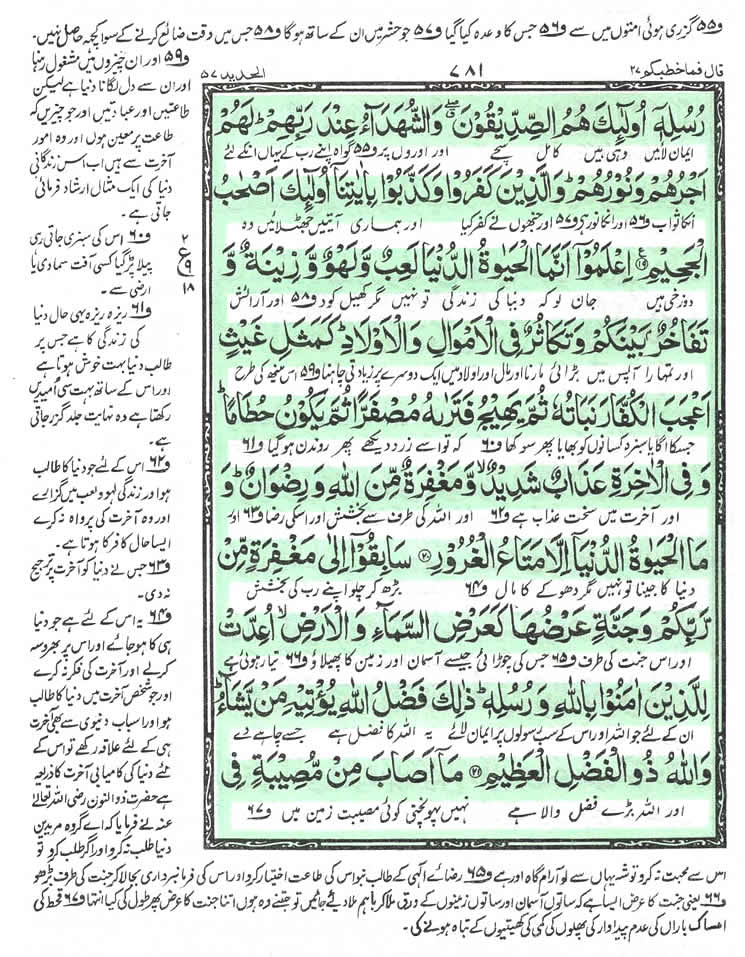 و۵۵ گزری ہوئی امتوں میں سے و۵۶ جس کا وعدہ کیا گیا و۵۷ جو حشر میں ان کے ساتھ ہوگا و۵۸ جس میں وقت ضائع کرنے کے سوا کچھ حاصل نہیں۔
قال فما خطبكم ۲۷
۷۸۱
الحدید ۵۷
رُسُلِهٖۤ اُولٰٓىِٕكَ هُمُ الصِّدِّیْقُوْنَ ۖۗ وَالشُّهَدَآءُ عِنْدَ رَبِّهِمْ ؕ لَهُمْ
ایمان لائیں وہی ہیں کامل سچے اور اوروں پر و۵۵ گواہ اپنے رب کے یہاں انکے لئے
اَجْرُهُمْ وَنُوْرُهُمْ ؕ وَالَّذِیْنَ كَفَرُوْا وَكَذَّبُوْا بِاٰیٰتِنَاۤ اُولٰٓىِٕكَ اَصْحٰبُ
انکا ثواب و۵۶ اور انکا نور ہے و۵۷ اور جنھوں نے کفر کیا اور ہماری آیتیں جھٹلائیں وہ
الْجَحِیْمِ ۠﴿۱۹﴾ اِعْلَمُوْۤا اَنَّمَا الْحَیٰوةُ الدُّنْیَا لَعِبٌ وَّلَهْوٌ وَّزِیْنَةٌ وَّ
دوزخی ہیں جان لو کہ دنیا کی زندگی تو نہیں مگر کھیل کود و۵۸ اور آرائش
تَفَاخُرٌۢ بَیْنَكُمْ وَتَكَاثُرٌ فِی الْاَمْوَالِ وَالْاَوْلَادِ ؕ كَمَثَلِ غَیْثٍ
اور تمہارا آپس میں بڑائی مارنا اور مال اور اولاد میں ایک دوسرے پر زیادتی چاہنا و۵۹ اس مینھ کی طرح
اَعْجَبَ الْكُفَّارَ نَبَاتُهٗ ثُمَّ یَهِیْجُ فَتَرٰىهُ مُصْفَرًّا ثُمَّ یَكُوْنُ حُطَامًا ؕ
جسکا اگایا سبزہ کسانوں کو بھایا پھر سوکھا و۶۰ کہ تو اسے زرد دیکھے پھر روندن ہوگیا و۶۱
وَفِی الْاٰخِرَةِ عَذَابٌ شَدِیْدٌ ۙ وَّمَغْفِرَةٌ مِّنَ اللهِ وَرِضْوَانٌ ؕ وَ
اور آخرت میں سخت عذاب ہے و۶۲ اور اللہ کی طرف سے بخشش اور اسکی رضا و۶۳ اور
مَا الْحَیٰوةُ الدُّنْیَاۤ اِلَّا مَتَاعُ الْغُرُوْرِ ﴿۲۰﴾ سَابِقُوْۤا اِلٰى مَغْفِرَةٍ مِّنْ
دنیا کا جینا تو نہیں مگر دھوکے کا مال و۶۴ بڑھ کر چلو اپنے رب کی بخشش
رَّبِّكُمْ وَجَنَّةٍ عَرْضُهَا كَعَرْضِ السَّمَآءِ وَالْاَرْضِ ۙ اُعِدَّتْ
اور اس جنت کی طرف و۶۵ جس کی چوڑائی جیسے آسمان اور زمین کا پھیلاؤ و۶۶ تیار ہوئی ہے
لِلَّذِیْنَ اٰمَنُوْا بِاللهِ وَرُسُلِهٖ ؕ ذٰلِكَ فَضْلُ اللهِ یُؤْتِیْهِ مَنْ یَّشَآءُ ؕ
ان کے لئے جو اللہ اور اس کے سب رسولوں پر ایمان لائے یہ اللہ کا فضل ہے جسے چاہے دے
وَاللهُ ذُو الْفَضْلِ الْعَظِیْمِ ﴿۲۱﴾ مَاۤ اَصَابَ مِنْ مُّصِیْبَةٍ فِی
اور اللہ بڑے فضل والا ہے نہیں پہونچتی کوئی مصیبت زمین میں و۶۷
و۵۹ اور ان چیزوں میں مشغول رہنا
اور ان سے دل لگانا دنیا ہے لیکن
طاعتیں اور عبادتیں اور جو چیزیں کہ
طاعت پر معین ہوں اور وہ امور
آخرت سے ہیں اب اس زندگانی
دنیا کی ایک مثال ارشاد فرمائی
جاتی ہے۔
و۶۰ اس کی سبزی جاتی رہی
پیلا پڑ گیا کسی آفت سماوی یا
ارضی سے۔
۲
ع
۹
۱۸
و۶۱ ریزہ ریزہ یہی حال دنیا
کی زندگی کا ہے جس پر
طالب دنیا بہت خوش ہوتا ہے
اور اس کے ساتھ بہت سی امیدیں
رکھتا ہے وہ نہایت جلد گزر جاتی
ہے۔
و۶۲ اس کے لئے جو دنیا کا طالب
ہو اور زندگی لہو و لعب میں گزارے
اور وہ آخرت کی پرواہ نہ کرے
ایسا حال کافر کا ہوتا ہے۔
و۶۳ جس نے دنیا کو آخرت پر ترجیح
نہ دی۔
و۶۴ یہ اس کے لئے ہے جو دنیا
ہی کا ہو جائے اور اس پر بھروسہ
کرلے اور آخرت کی فکر نہ کرے
اور جو شخص آخرت میں دنیا کا طالب
ہو اور اسباب دنیوی سے بھی آخرت
ہی کے لئے علاقہ رکھے تو اس کے
لئے دنیا کی کامیابی آخرت کا ذریعہ
ہے حضرت ذوالنون رضی اللہ تعالیٰ
عنہ نے فرمایا کہ اے گروہ مریدین
دنیا طلب نہ کرو اور اگر طلب کرو تو
اس سے محبت نہ کرو توشہ یہاں سے لو آرام گاہ اور ہے و۶۵ رضائے الٰہی کے طالب بنو اس کی طاعت اختیار کرو اور اس کی فرمانبرداری بجا لا کر جنت کی طرف بڑھو
و۶۶ یعنی جنت کا عرض ایسا ہے کہ ساتوں آسمان اور ساتوں زمینوں کے ورق ملا کر باہم ملا دئیے جائیں تو جتنے وہ ہوں اتنا جنت کا عرض پھر طول کی کیا انتہا و۶۷ قحط کی
امساک باراں کی عدم پیداوار کی پھلوں کی کمی کی کھیتیوں کے تباہ ہونے کی۔